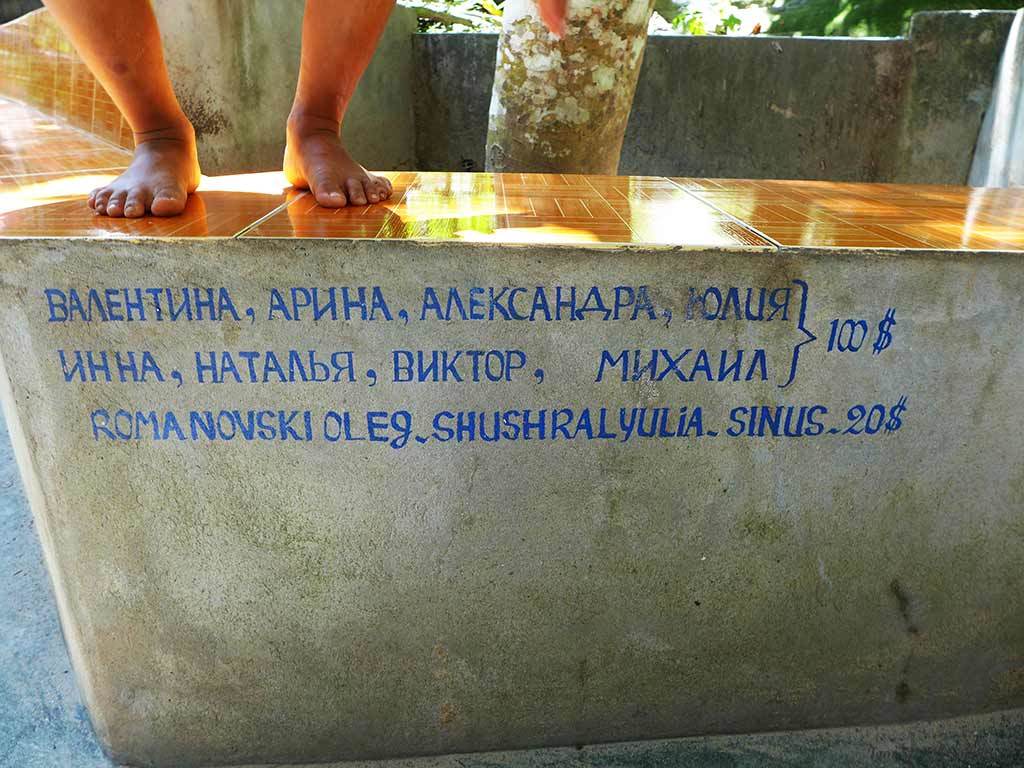 ВАЛЕНТИНА, АРИНА, АЛЕКСАНДРА, ЮЛИЯ } 100 $
ИННА, НАТАЛЬЯ, ВИКТОР, МИХАИЛ
ROMANOVSKI OLEG-SHUSHRALYULIA-SINUS-20$